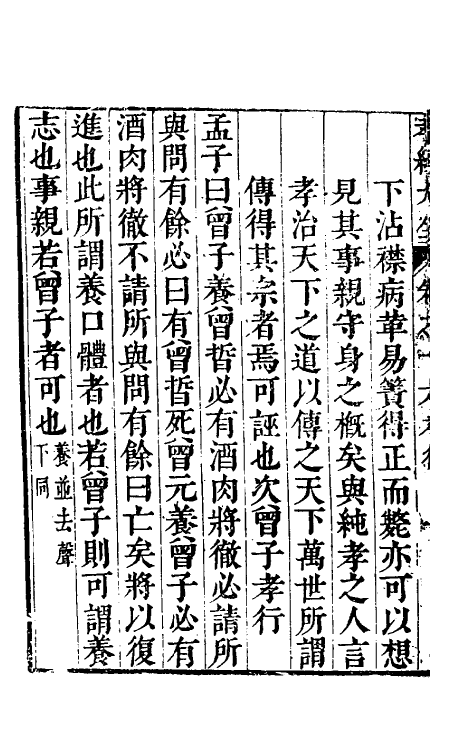 孝經大全
下沾襟病革易簀得正而斃亦可以想
見其事親守身之槪矣與純孝之人言
孝治天下之道以傳之天下萬世所謂
傳得其宗者焉可誣也次曾子孝行
孟子曰曾子養曾晳必有酒肉將徹必請所
與問有餘必曰有曾晳死曾元養曾子必有
酒肉將徹不請所與問有餘曰亡矣將以復
進也此所謂養口體者也若曾子則可謂養
志也事親若曾子者可也養並去聲下同